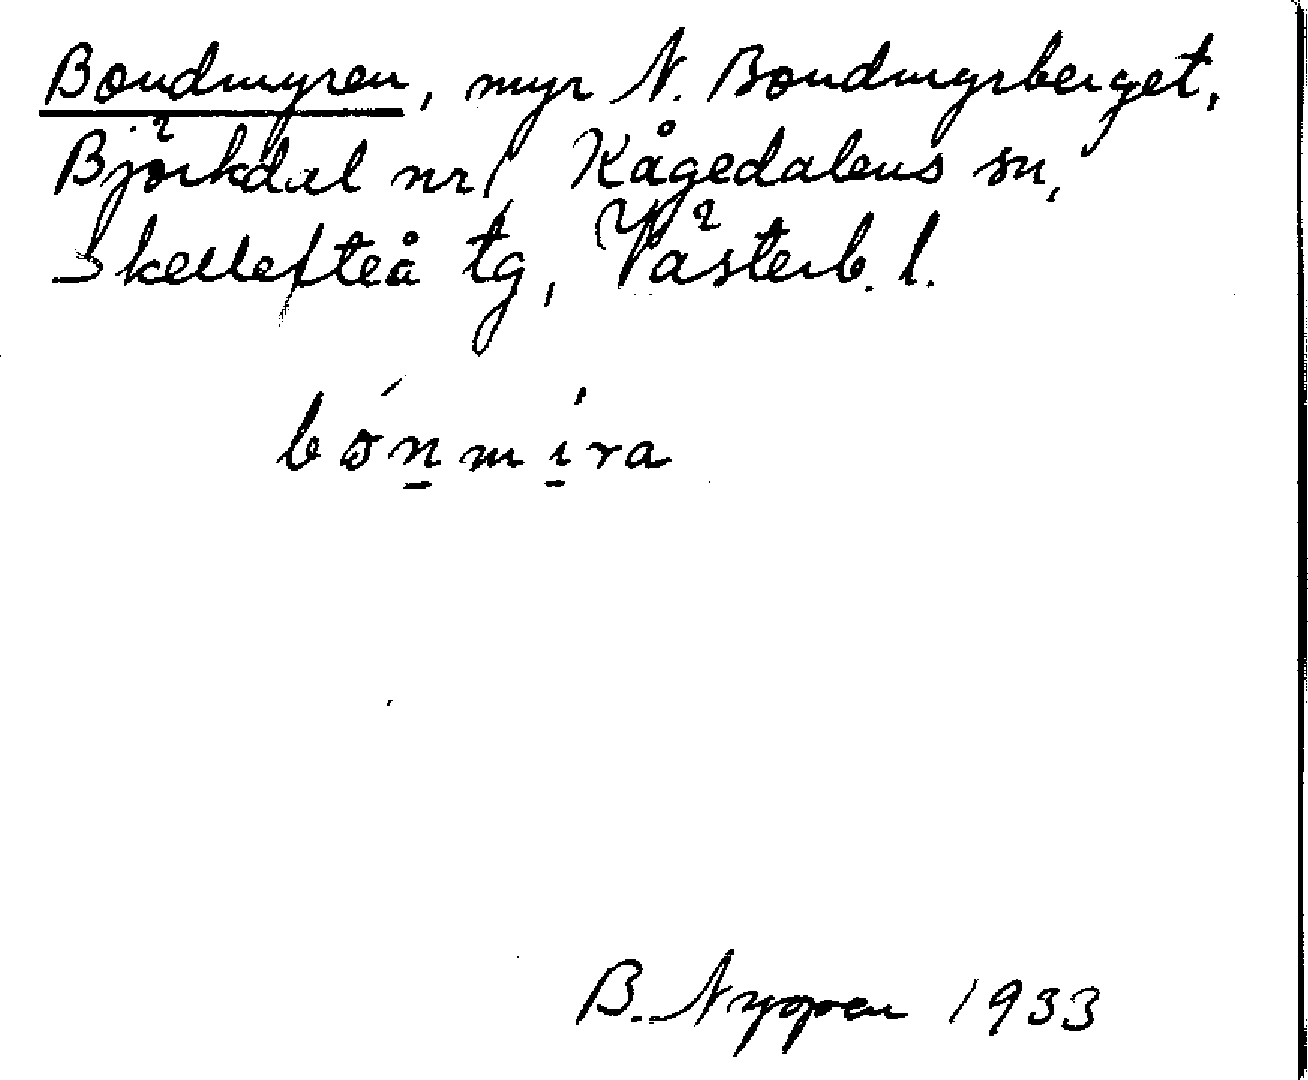 Bondmyren, myr N. Bondmyrberget,
Björkdal nr 1, Kågedalens sn,
Skellefteå tg, Västerb. l.
bónmíra
B. Nyqven 1933